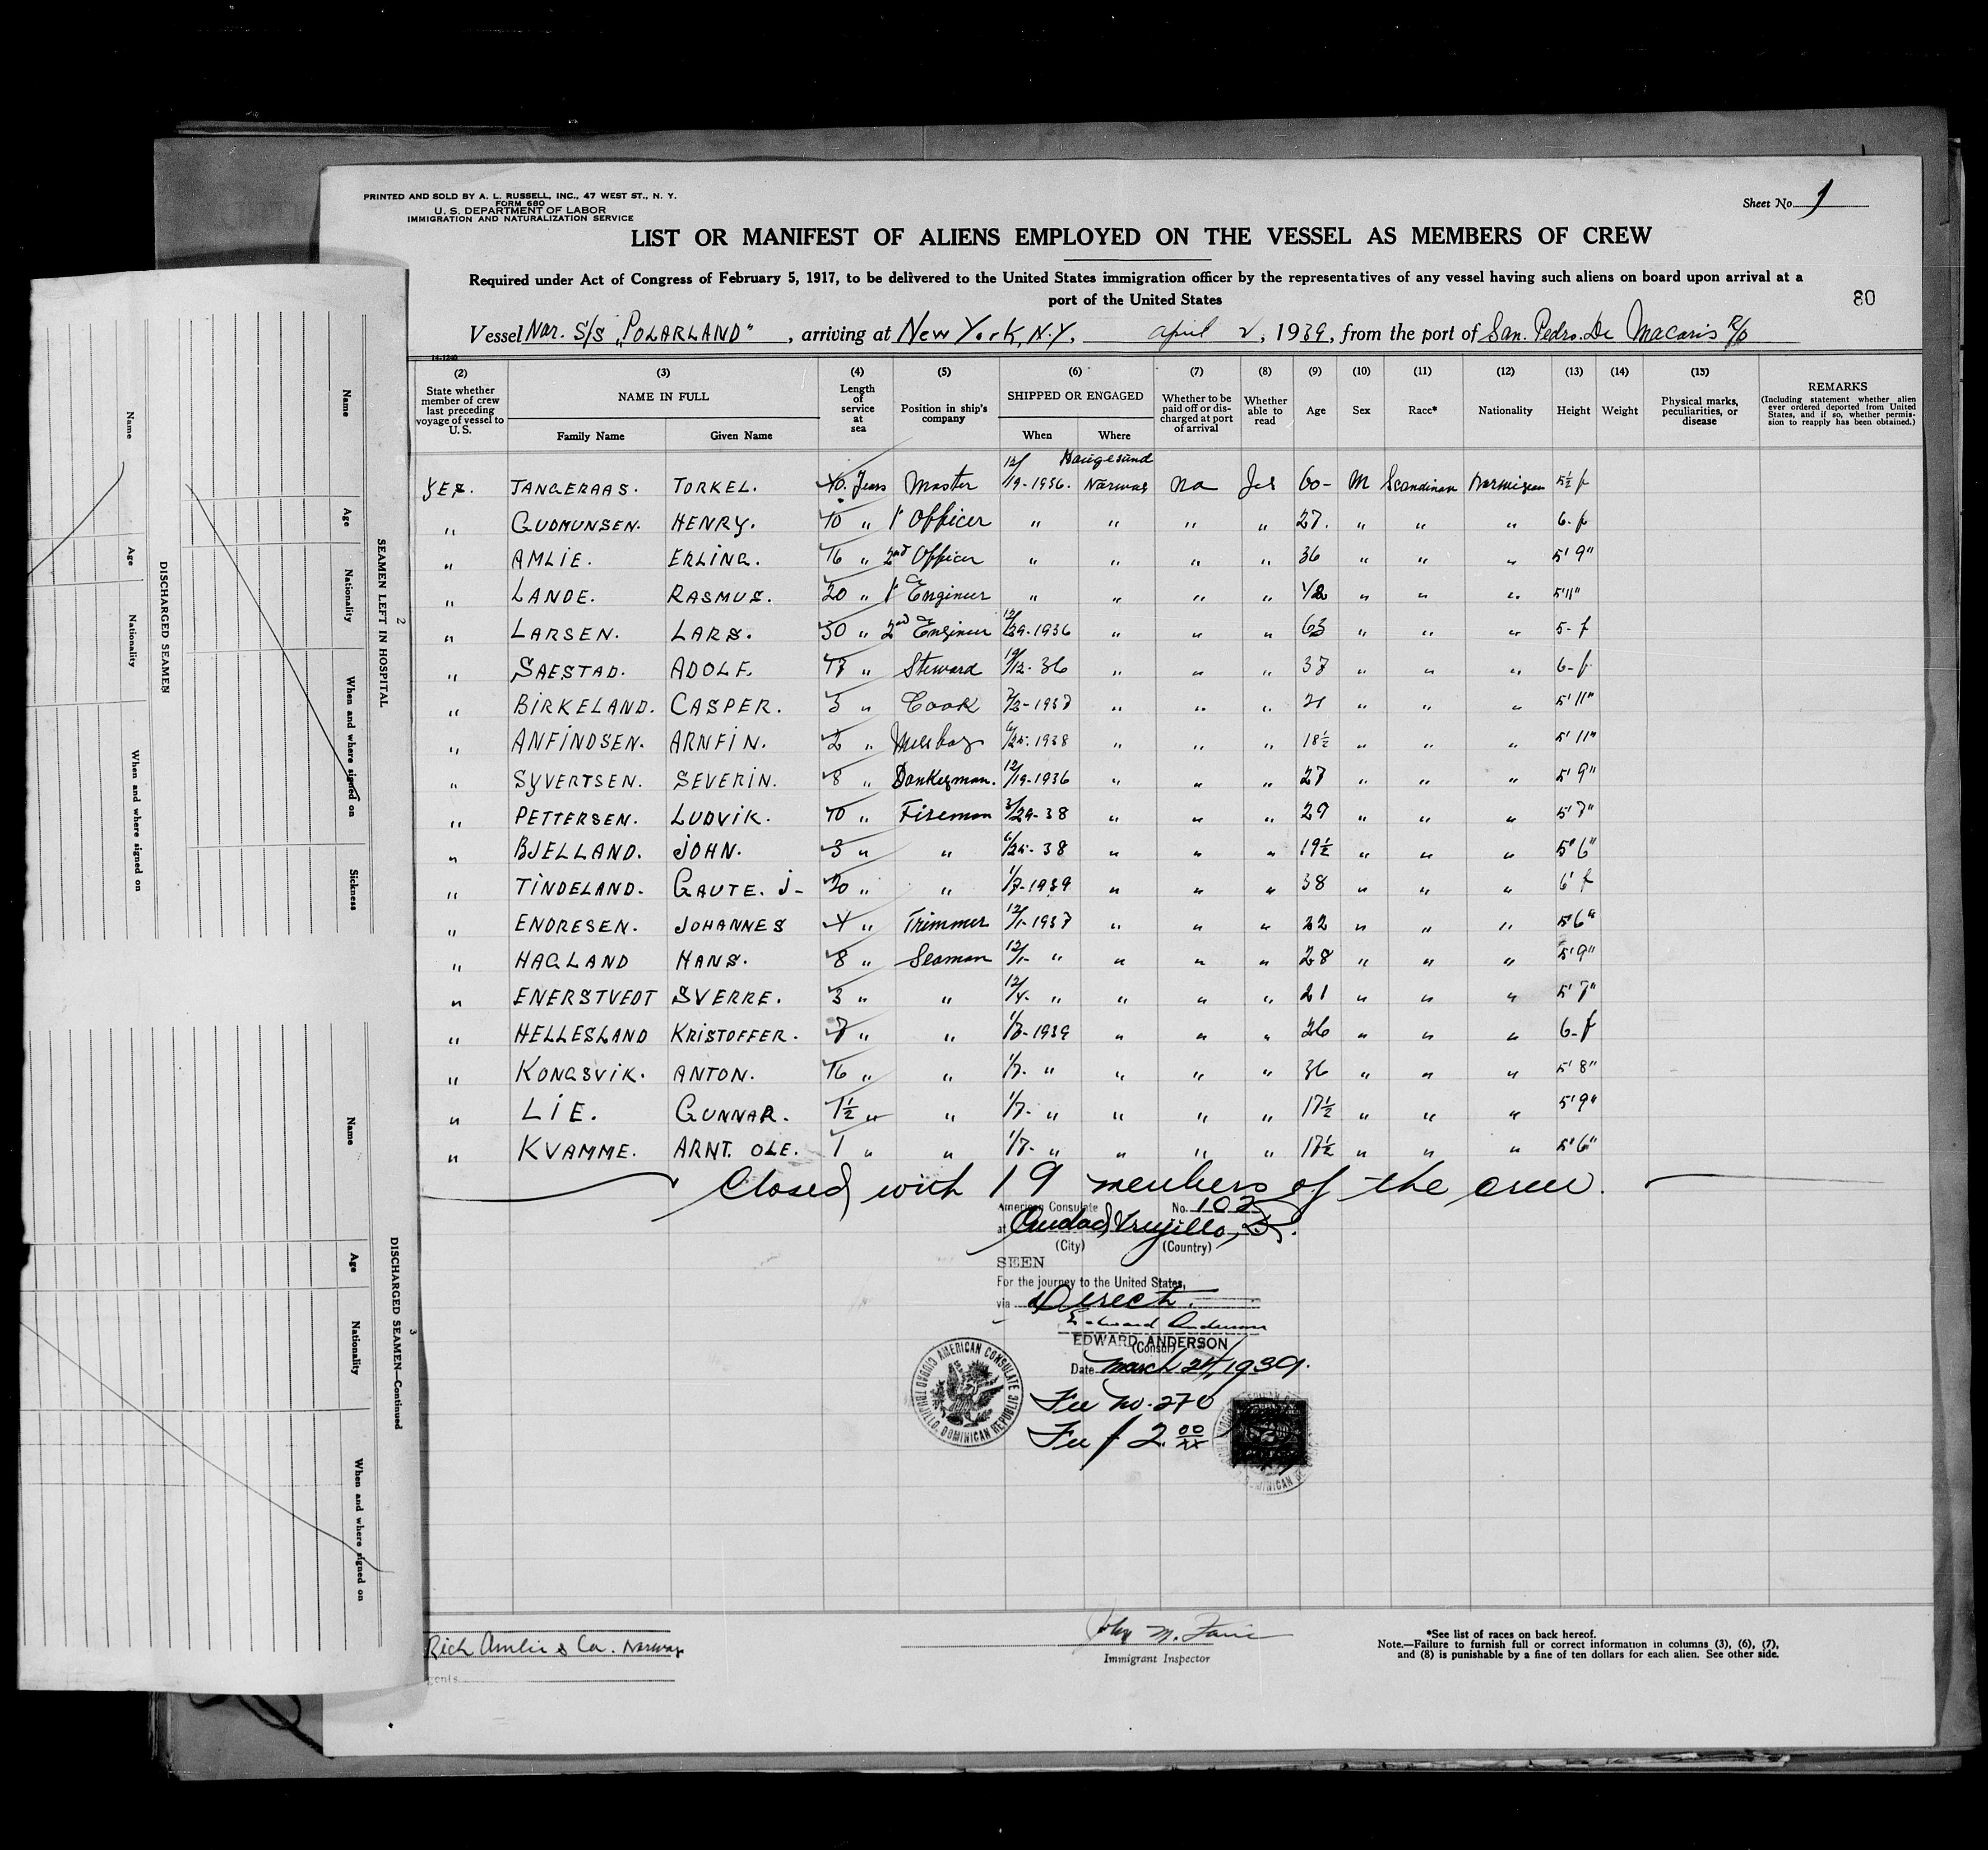 PRINTED AND SOLD BY A. L. RUSSELL, INC., 47 WEST ST., N. Y.
FORM 680
U. S. DEPARTMENT OF LABOR
IMMIGRATION AND NATURALIZATION SERVICE
Sheet No 1
LIST OR MANIFEST OF ALIENS EMPLOYED ON THE VESSEL AS MEMBERS OF CREW
Required under Act of Congress of February 5, 1917, to be delivered to the United States immigration officer by the representatives of any vessel having such aliens on board upon arrival at a
port of the United States
80
Vessel Nor. S/S „POLARLAND" , arriving at New York, N.Y. april 2, 1939, from the port of San. Pedro. De Macoris R/D
14-1240
(2) State whether member of crew last preceding voyage of vessel to U. S.
(3) NAME IN FULL Family Name Given Name
(4) Length of service at sea
(5) Position in ship's company
(6) SHIPPED OR ENGAGED When Where
(7) Whether to be paid off or discharged at port of arrival
(8) Whether able to read
(9) Age
(10) Sex
(11) Race*
(12) Nationality
(13) Height
(14) Weight
(15) Physical marks, peculiarities, or disease
REMARKS (Including statement whether alien ever ordered deported from United States, and if so, whether permission to reapply has been obtained.)
YES. TANGERAAS. TORKEL. 40. Years Master 12/19-1936. Haugesund Norway No Yes 60- M Scandinav Norwigean 5½ f
" GUDMUNSEN. HENRY. 10 " 1' Officer " " " " 27. " " " 6-f
" AMLIE. ERLING. 16 " 2nd Officer " " " " 36 " " " 5' 9"
" LANDE. RASMUS. 20 " 1' Engineer " " " " 42 " " " 5'11"
" LARSEN. LARS. 30 " 2nd Engineer 12/29-1936 " " " 63 " " " 5-f
" SAESTAD. ADOLF. 17 " Steward 19/12-36 " " " 37 " " " 6-f
" BIRKELAND. CASPER. 3 " Cook 2/3-1937 " " " 21 " " " 5' 11"
" ANFINDSEN. ARNFIN. 2 " Messboy 6/25-1938 " " " 18½ " " " 5' 11"
" SYVERTSEN. SEVERIN. 8 " Donkeyman. 12/19-1936 " " " 27 " " " 5' 9"
" PETTERSEN. LUDVIK. 10 " Fireman 3/29-38 " " " 29 " " " 5' 7"
" BJELLAND. JOHN. 3 " " 6/25-38 " " " 19½ " " " 5' 6"
" TINDELAND. GAUTE. J- 20 " " 1/7-1939 " " " 38 " " " 6' f
" ENDRESEN. JOHANNES 4 " Trimmer 12/1-1937 " " " 22 " " " 5'6"
" HAGLAND HANS. 8 " Seaman 12/1- " " " " 28 " " " 5'9"
" ENERSTVEDT SVERRE. 3 " " 12/4- " " " " 21 " " " 5' 7"
" HELLESLAND KRISTOFFER. 7 " " 1/7-1939 " " " 26 " " " 6-f
" KONGSVIK. ANTON. 16 " " 1/7- " " " " 36 " " " 5' 8"
" LIE. GUNNAR. 1½ " " 1/7- " " " " 17½ " " " 5'9"
" KVAMME. ARNT. OLE. 1 " " 1/7- " " " " 17½ " " " 5'6"
Closed with 19 members of the crew.
American Consulate No. 102
at Ciudad Trujillo, D.R.
(City) (Country)
SEEN
For the journey to the United States,
via Direct.
Edward Anderson
EDWARD ANDERSON
(Consul)
Date March 24, 1939.
Fee No. 270
Fee $ 2.00
AMERICAN CONSULATE CIUDAD TRUJILLO, DOMINICAN REPUBLIC
Rich Amlie & Co. Norway
gents
Immigrant Inspector
*See list of races on back hereof.
Note.—Failure to furnish full or correct information in columns (3), (6), (7),
and (8) is punishable by a fine of ten dollars for each alien. See other side.
2
SEAMEN LEFT IN HOSPITAL
Name Age Nationality When and where signed on Sickness
DISCHARGED SEAMEN
Name Age Nationality When and where signed on
3
DISCHARGED SEAMEN—Continued
Name Age Nationality When and where signed on